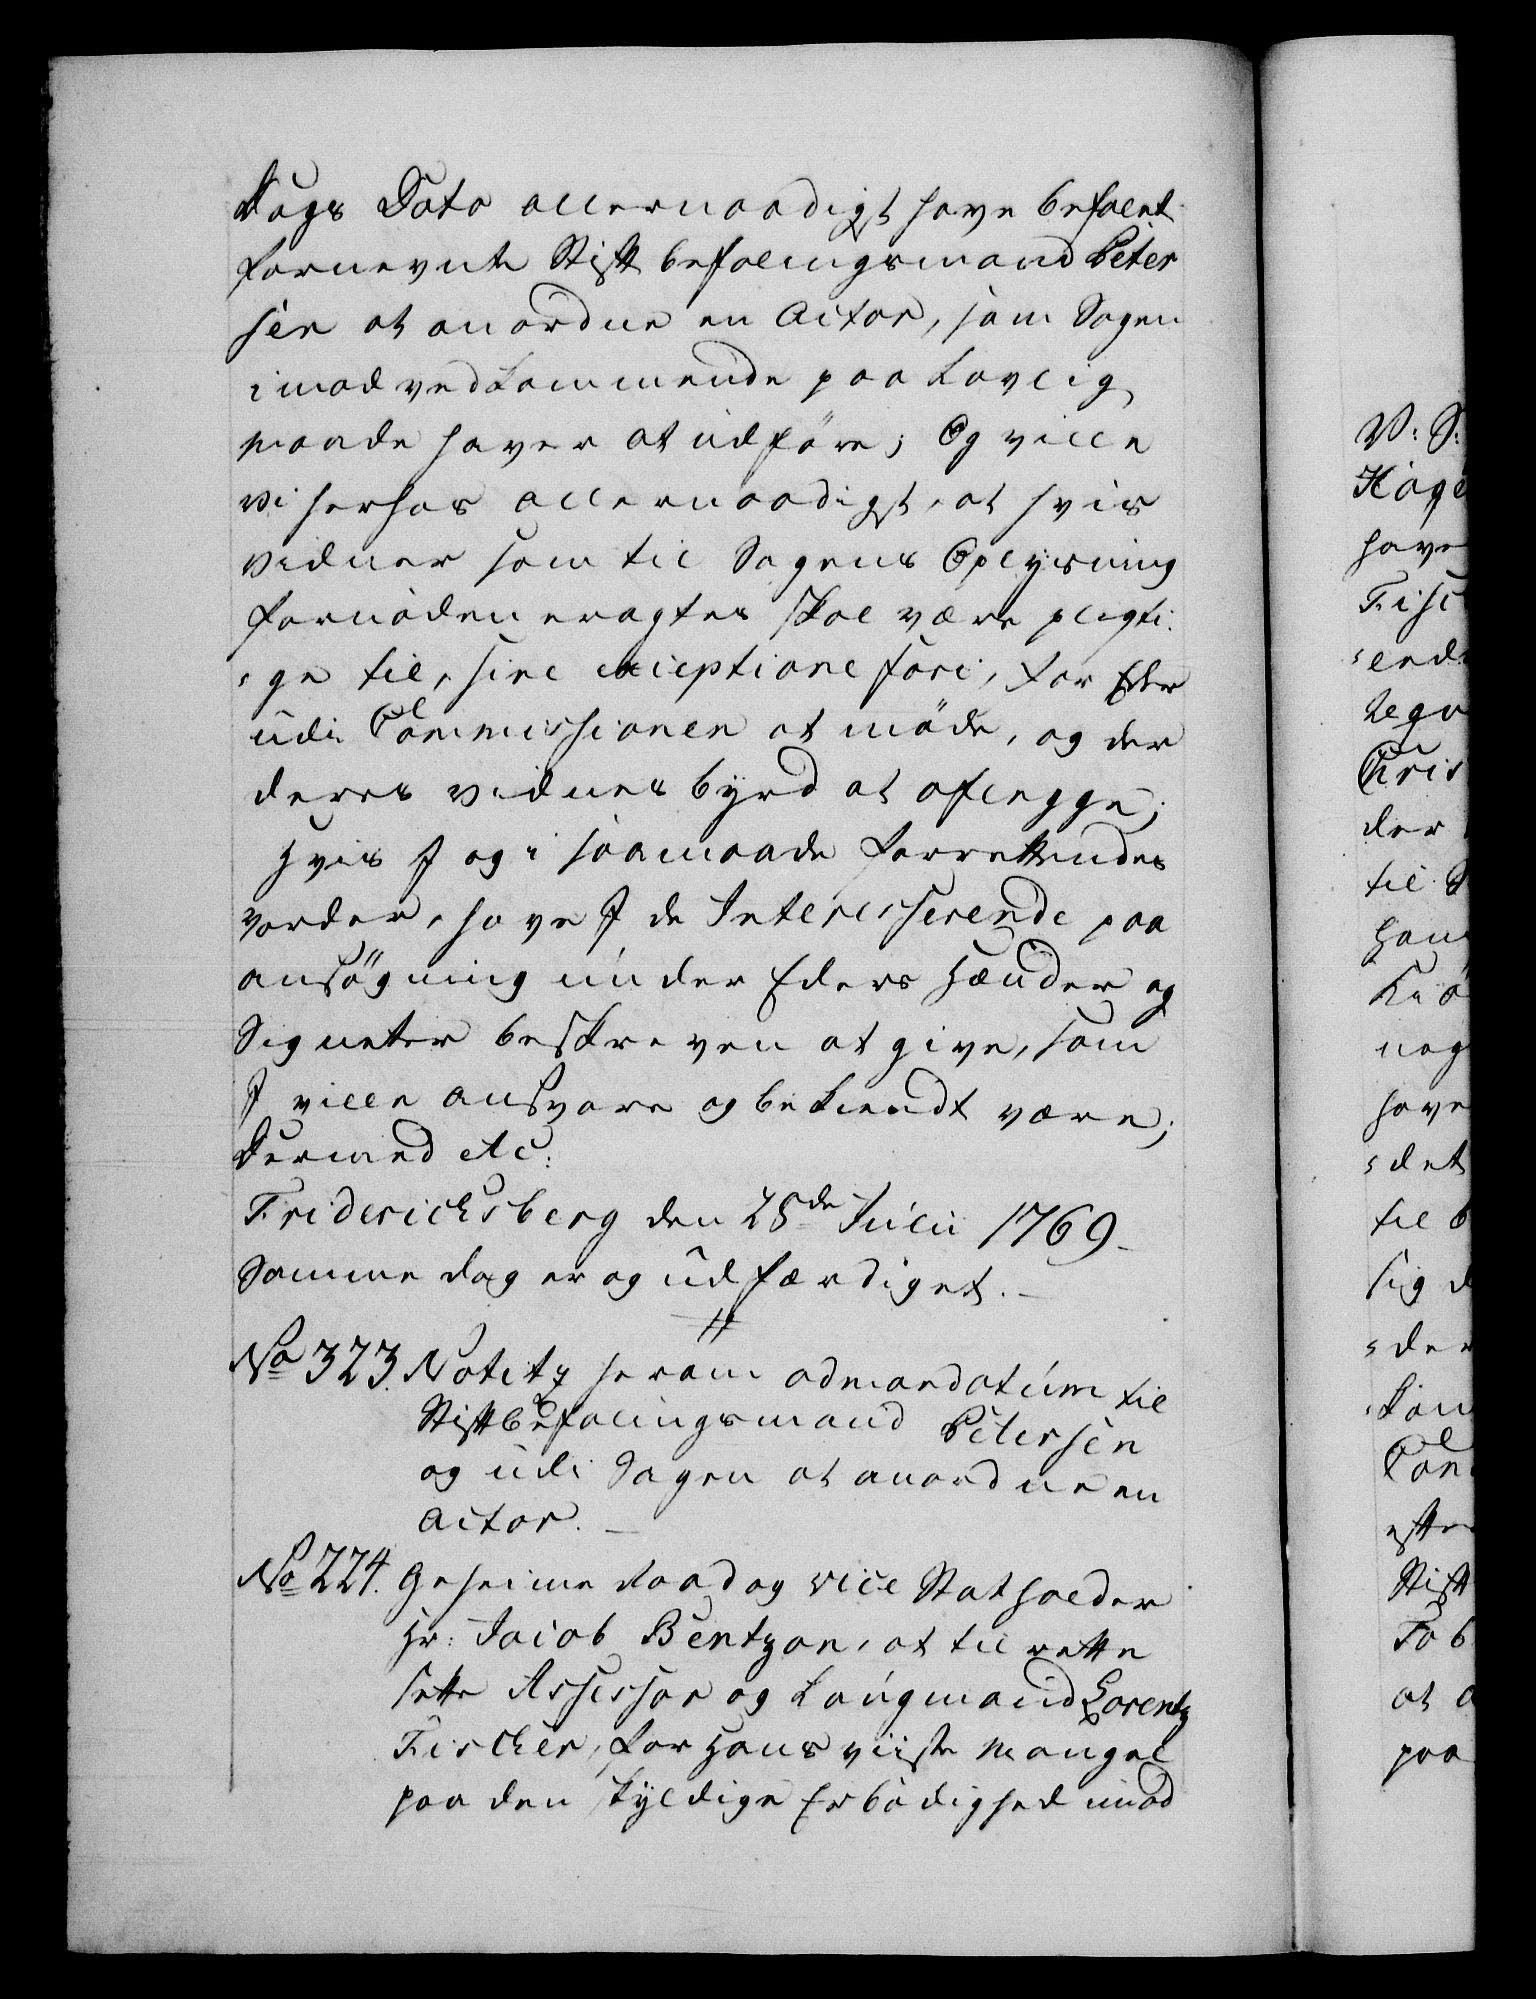 Dags Dato allernaadigst have befalet
fornevnte Stiftbefalingsmand Peter
sen at anordne en Actor, som Sagen
imod vedkommende paa Lovlig
maade haver at udføre; Og ville
Vi herhos allernaadigst, at hvis
Vidner som til Sagens Oplysning
fornøden eragtes skal være pligti-
ge til, sine exceptione fori, for Eder
udi Commissionen at møde, og der
deres Vidnesbyrd at aflegge;
Hvis I og i saamaade forrettendes
vorder, have I de Interesserende paa
ansøgning under Eders Hænder og
Signeter beskreven at give, som
I ville ansvare og bekiendt være;
Dermed etc:
Friderichsberg den 28de Julii 1769.
Samme dag er og udfærdiget.
No 323. Notitz herom ad mandatum til
Stiftbefalingsmand Petersen
og udi Sagen at anordne en
Actor.
No 224. Geheime Raad og Vice Statholder
Hr: Jacob Bentzon, at til rette
sette Assessor og Laugmand Lorentz
Fischer, for Hans viiste Mangel
paa den skyldige Erbødighed imod
V: S:
have
der
til
have
det
til
sig
paa